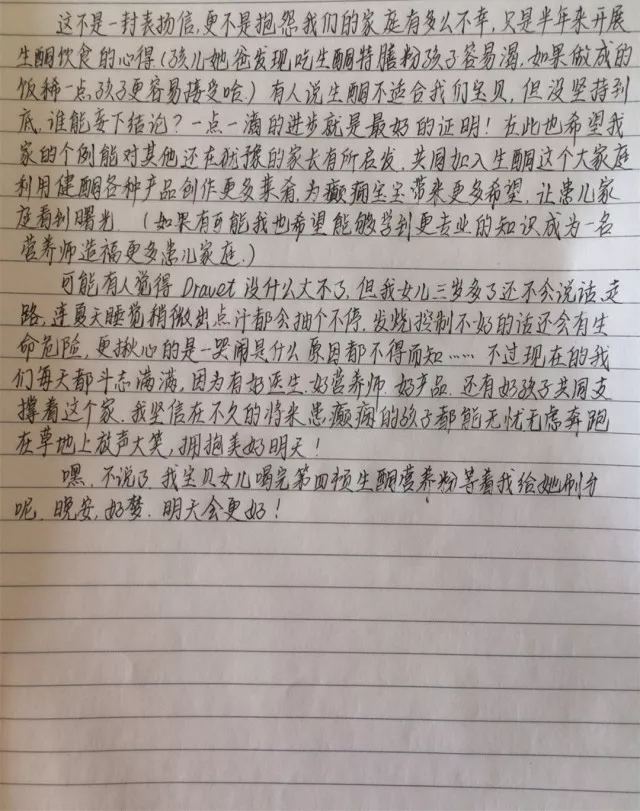 这不是一封表扬信,更不是抱怨我们的家庭有多么不幸,只是半年来开展
生酮饮食的心得(孩儿她爸发现吃生酮特膳粉孩子容易渴,如果做成的
饭稀一点,孩子更容易接受哈.)有人说生酮不适合我们宝贝,但没坚持到
底,谁能妄下结论?一点一滴的进步就是最好的证明!在此也希望我
家的个例能对其他还在犹豫的家长有所启发,共同加入生酮这个大家庭
利用健酮各种产品创作更多菜肴,为癫痫宝宝带来更多希望,让患儿家
庭看到曙光.(如果有可能我也希望能够学到更专业的知识成为一名
营养师造福更多患儿家庭.)
可能有人觉得Dravet没什么大不了,但我女儿三岁多了还不会说话、走
路,连夏天睡觉稍微出点汁都会抽个不停,发烧控制不好的话还会有生
命危险,更揪心的是一哭闹是什么原因都不得而知……不过现在的我
们每天都斗志满满,因为有好医生.好营养师.好产品.还有好孩子共同支
撑着这个家.我坚信在不久的将来患癫痫的孩子都能无忧无虑奔跑
在草地上放声大笑,拥抱美好明天!
嘿,不说了,我宝贝女儿喝完第四顿生酮营养粉等着我给她刷牙
呢.晚安,好梦.明天会更好!